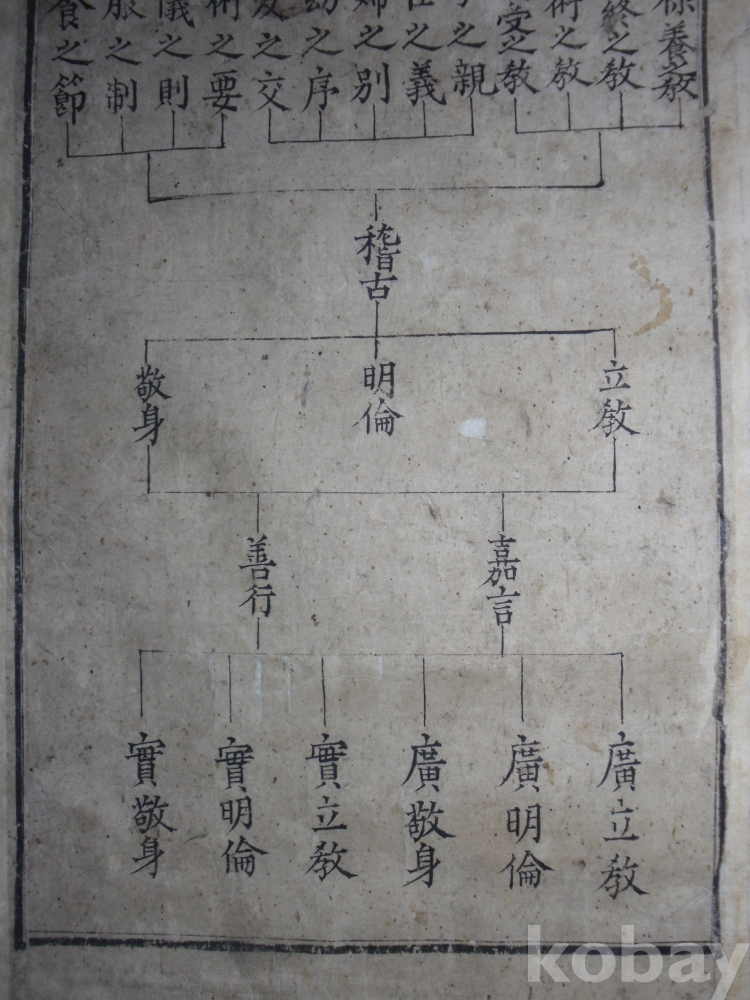 養之教
終之教
術之教
受之教
之親
之義
婦之別
幼之序
友之交
術之要
儀之則
服之制
食之節
稽古
立教
明倫
敬身
嘉言
善行
廣立教
廣明倫
廣敬身
實立教
實明倫
實敬身
kobay